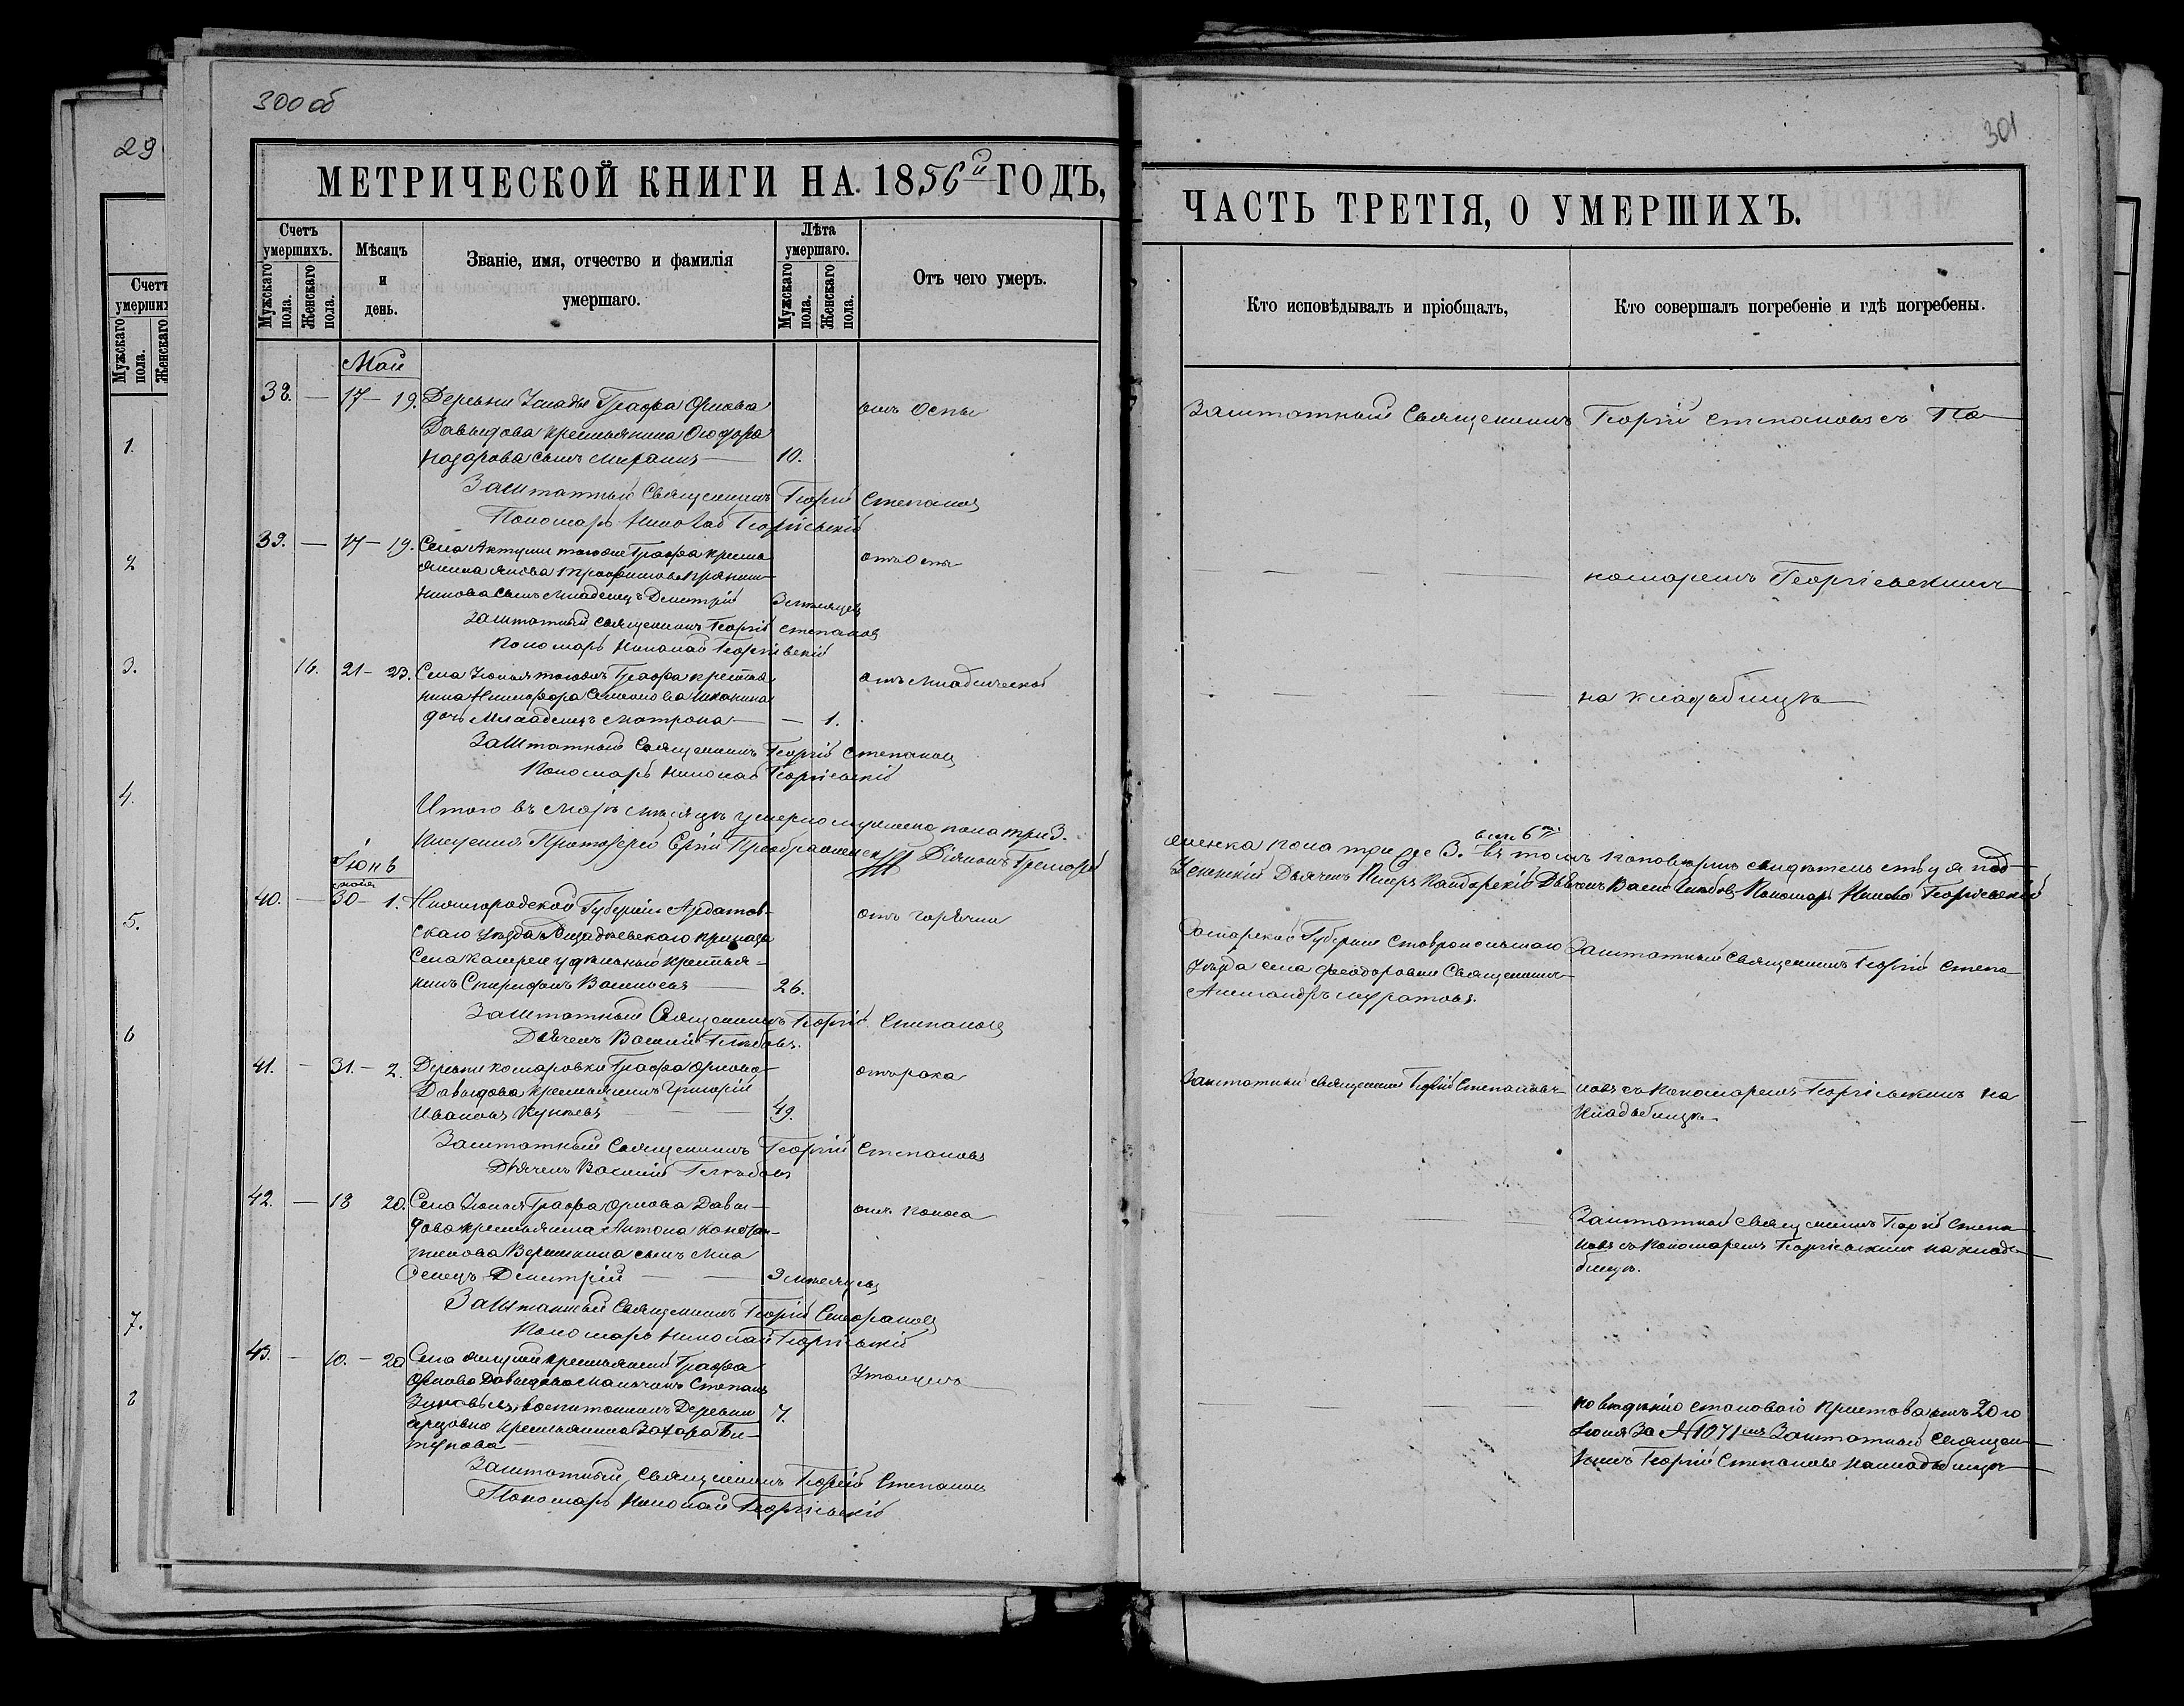 300 об
301
29
МЕТРИЧЕСКОЙ КНИГИ НА 1856й ГОДЪ,
ЧАСТЬ ТРЕТІЯ, О УМЕРШИХЪ.
Счетъ умершихъ.
Мужскаго пола.
Женскаго пола.
Мѣсяцъ и день.
Званіе, имя, отчество и фамилія умершаго.
Лѣта умершаго.
Мужскаго пола.
Женскаго пола.
Отъ чего умеръ.
Кто исповѣдывалъ и пріобщалъ,
Кто совершалъ погребеніе и гдѣ погребены.
Май
38. — 17 — 19. Деревни Усладъ Графа Орлова отъ Оспы
Давыдова крестьянина Ѳеодора
Назарова сынъ 10.
Заштатный Священникъ Георгій Степановъ
Пономарь Николай Георгіевскій
Заштатный Священникъ Георгій Степановъ съ По-
39. — 17 — 19. Села Актуши тогоже Графа кресть отъ Оспы
янина Якова Трофимова
сынъ младенецъ Димитрій 3 мѣсяцевъ
Заштатный священникъ Георгій Степановъ
Пономарь Николай Георгіевскій
номаремъ Георгіевскимъ
16. 21 — 23. Села тогожъ Графа крестья отъ младенческой
нина Никифора Семенова
дочь Младенецъ Матрона — — 1.
Заштатный Священникъ Георгій Степановъ
Пономарь Николай Георгіевскій
на кладбищѣ
Итого въ Маѣ мѣсяцѣ умерло мужеска пола три 3.
женска пола три 3. всѣхъ 6ть
Протоіерей Сергій Преображенскій Діаконъ Григорій
Успенскій Дьячекъ Петръ Дьячекъ Василій Глѣбовъ Пономарь Николай Георгіевскій
Іюнь
мая
40. — 30 — 1. Нижегородской Губерніи Ардатов- отъ горячки
скаго уѣзда приказа
Села удѣльный крестья-
нинъ Спиридонъ Васильевъ — 26.
Заштатный Священникъ Георгій Степановъ
Дьячекъ Василій Глѣбовъ.
Самарской Губерніи Ставропольскаго
Уѣзда села Феодоровки Священникъ
Александръ Муратовъ.
Заштатный Священникъ Георгій Степа
41. — 31. — 2. Деревни Комаровки Графа Орлова отъ рака
Давыдова крестьянинъ Григорій
Ивановъ 49.
Заштатный Священникъ Георгій Степановъ
Дьячекъ Василій Глѣбовъ
Заштатный священникъ Георгій Степановъ
новъ съ Пономаремъ Георгіевскимъ на
Кладбищѣ.
42. — 18 20. Села Графа Орлова Давы- отъ поноса
дова крестьянина Антона Констан-
тинова Вершинина сынъ мла
денецъ Димитрій — — 9 мѣсяцевъ
Заштатный Священникъ Георгій Степановъ
Пономарь Николай Георгіевскій
Заштатный Священникъ Георгій Степа
новъ съ Пономаремъ Георгіевскимъ на кладб-
бищѣ.
43. — 10. — 20 Села крестьянинъ Графа Утонулъ
Орлова Давыдова мальчикъ Степанъ
воспитанникъ Деревни 7.
крестьянина Захара
Заштатный Священникъ Георгій Степановъ
Пономарь Николай Георгіевскій
по становаго Пристава отъ 20го
Іюня За № 1071мъ Заштатный Священ
никъ Георгій Степановъ на кладбищѣ
1.
2
3.
4.
5.
6
7.
8